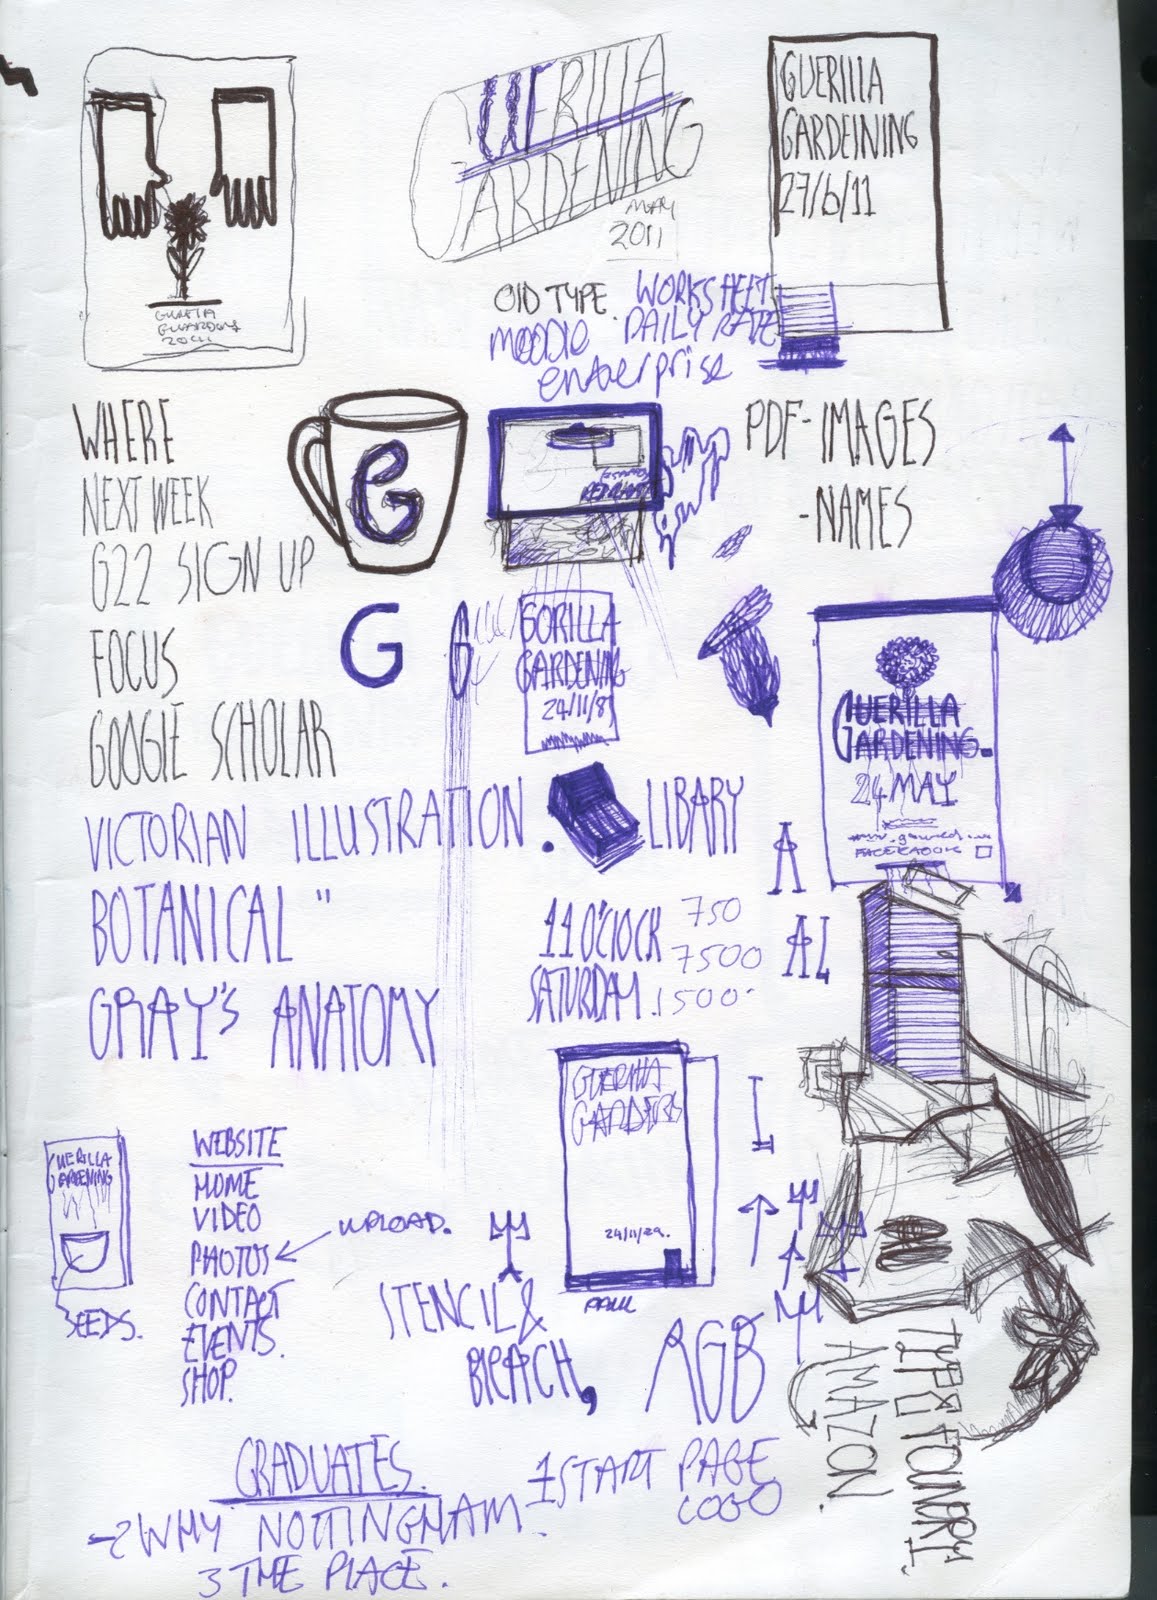 UERILLA
ARDENING
MAY
2011
GUERILLA
GARDEINING
27/6/11
OLD TYPE.
WORKSHEET
MOODLE
DAILY RATE
enterprise
WHERE
NEXT WEEK
G22 SIGN UP
FOCUS
GOOGLE SCHOLAR
G
PDF-IMAGES
-NAMES
G
G
GORILLA
GARDENING
24/11/8
GUERILLA
GARDENING.
24 MAY
FACEBOOK
VICTORIAN ILLUSTRATION.
LIBARY
BOTANICAL "
GRAY'S ANATOMY
11 O'CLOCK
SATURDAY.
750
7500
1500
A
AL
GUERILLA
GARDENING
SEEDS.
WEBSITE
HOME
VIDEO
PHOTOS
UPLOAD.
CONTACT
EVENTS.
SHOP.
GUERILLA
GARDERS
24/11/29.
STENCIL &
BLEACH,
RGB
TYPE FOUNDRY
AMAZON.
GRADUATES.
-2 WHY NOTTINGHAM.
3 THE PLACE.
1 START PAGE
LOGO